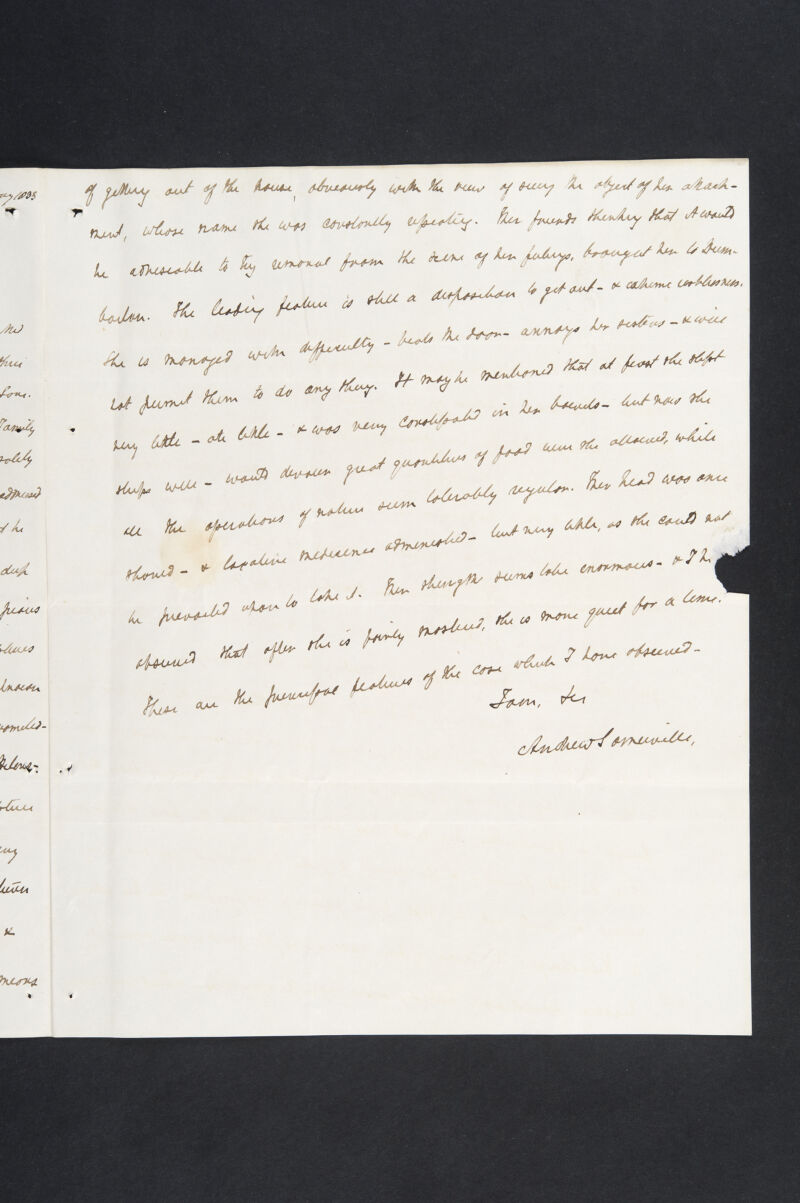 of getting out of the house, obviously with the view of seeing the object of her attach-
ment, whose name she was constantly repeating. Her friends thinking that it would
be adviseable to try removal from the scene of her feelings, brought her to Dum-
barton. The leading feature is still a disposition to get out - & extreme restlessness.
She is managed with difficulty - beats the door - annoys her sisters - & will
not permit them to do any thing. It may be mentioned that at first she slept
very little - ate little - & was very constipated in her bowels - but now she
sleeps well - would devour great quantities of food were she allowed, while
all the operations of nature seem tolerably regular. Her head was once
shaved - & laxative medicines administed - but very little, as she could not
be prevailed upon to take it. Her strength seems to be enormous - & I ha
observed that after she is fairly mastered, she is more quiet for a time.
These are the principal features of the case which I have observed -
I am, &c
Andrew Somerville,
ay 1835
this
Sons.
Family
solely
admired
& he
deep
&
means